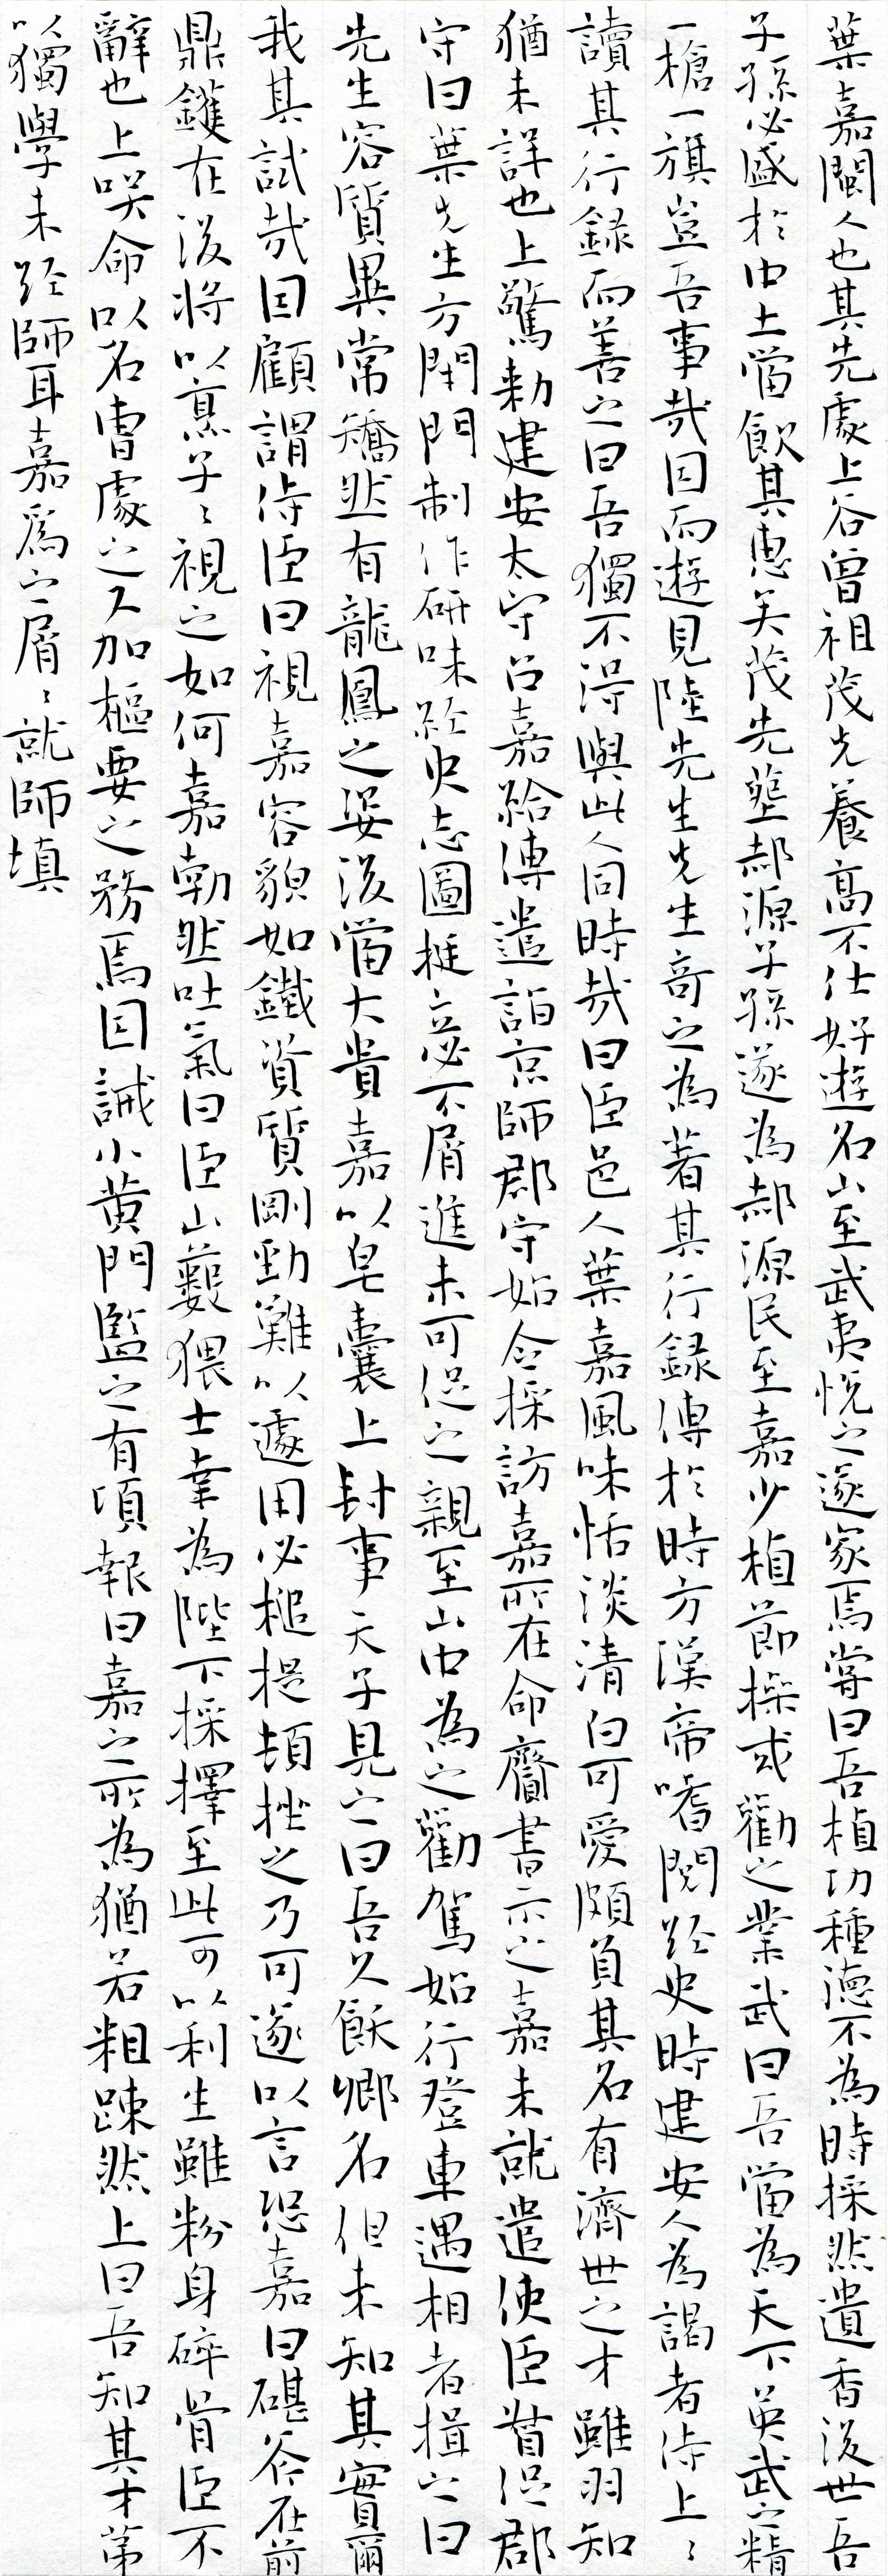 葉嘉閩人也其先處上谷曾祖茂先養高不仕好遊名山至武夷悅之遂家焉嘗曰吾植功種德不為時採然遺香後世吾
子孫必盛於中土當飲其惠矣茂先葬郝源子孫遂為郝源民至嘉少植節操或勸之業武曰吾當為天下英武之精
一槍一旗豈吾事哉因而遊見陸先生先生奇之為著其行録傳於時方漢帝嗜閱經史時建安人為謁者侍上〻
讀其行録而善之曰吾獨不得與此人同時哉曰臣邑人葉嘉風味恬淡清白可愛頗負其名有濟世之才雖羽知
猶未詳也上驚勅建安太守召嘉給傳遣詣京師郡守始令採訪嘉所在命齎書示之嘉未就遣使臣督促郡
守曰葉先生方閉門制作研味經史志圖挺立必不屑進未可促之親至山中為之勸駕始行登車遇相者揖之曰
先生容質異常矯然有龍鳳之姿後當大貴嘉以皂囊上封事天子見之曰吾久飫卿名但未知其實爾
我其試哉因顧謂侍臣曰視嘉容貌如鐵資質剛勁難以遽用必槌提頓挫之乃可遂以言恐嘉曰碪斧在前
鼎鑊在後將以烹子〻視之如何嘉勃然吐氣曰臣山藪猥士幸為陛下採擇至此可以利生雖粉身碎骨臣不
辭也上哭命以名曹處之又加樞要之務焉因誡小黄門監之有頃報曰嘉之所為猶若粗疎然上曰吾知其才第
以獨學未經師耳嘉為之屑〻就師填